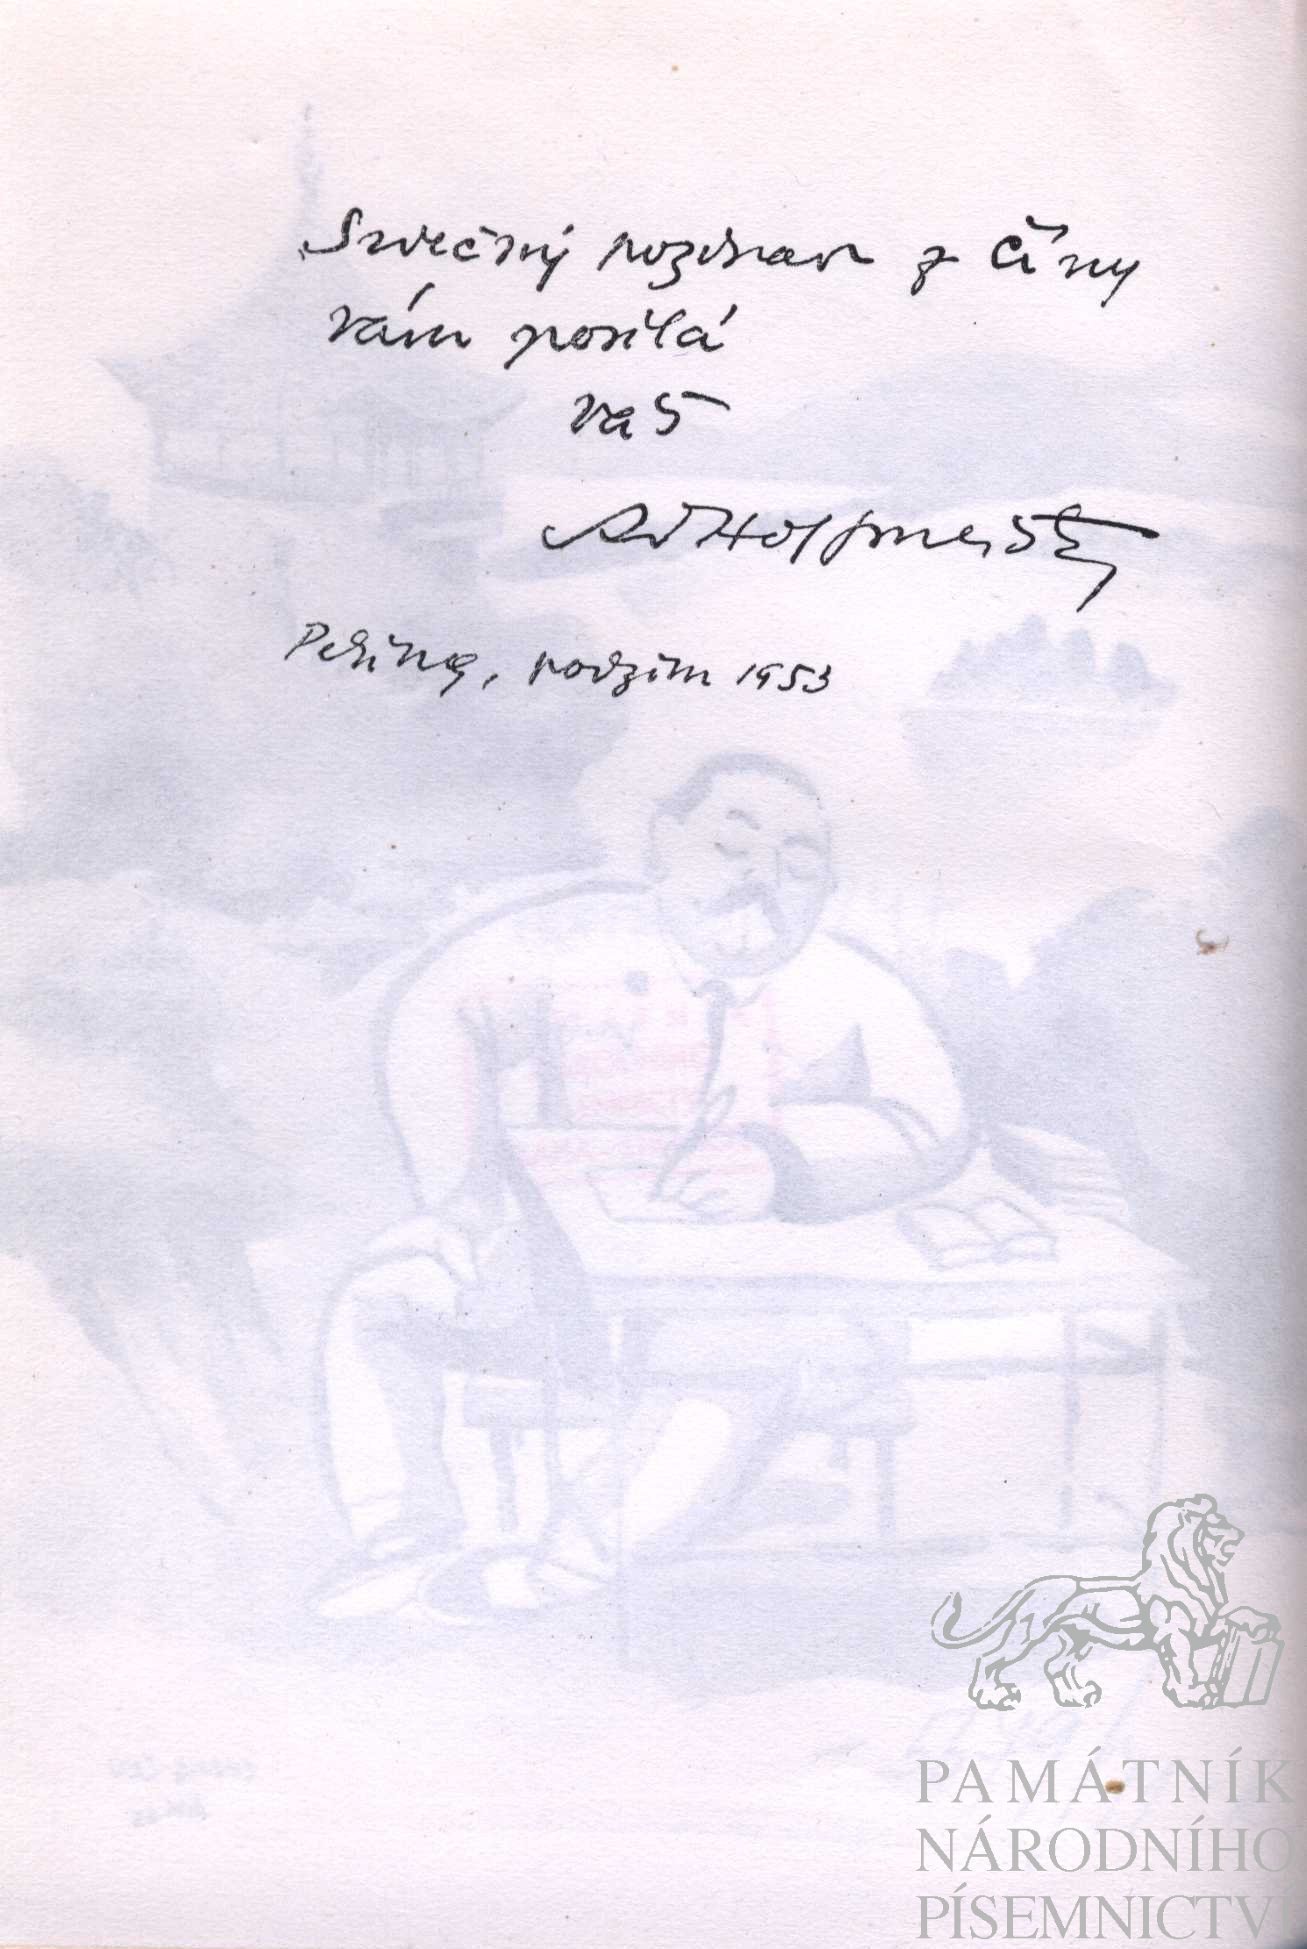 Srdečný pozdrav z Číny
vám posílá
váš
AdHoffmeister
Peking, podzim 1953
PAMÁTNÍK
NÁRODNÍHO
PÍSEMNICTVÍ